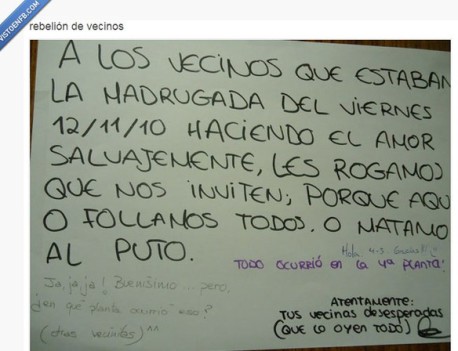 VISTOENFB.COM
rebelión de vecinos
A LOS VECINOS QUE ESTABAN
LA MADRUGADA DEL VIERNES
12/11/10 HACIENDO EL AMOR
SALVAJEMENTE, LES ROGAMOS
QUE NOS INVITEN; PORQUE AQU
O FOLLAMOS TODOS. O MATAMO
AL PUTO.
TODO OCURRIÓ EN LA 4ª PLANTA!
Ja, ja, ja! BUENÍSIMO... pero,
¿en qué planta ocurrió eso?
(otras vecinitas) ^^
ATENTAMENTE:
TUS vecinas desesperadas
(QUE LO OYEN TODO)